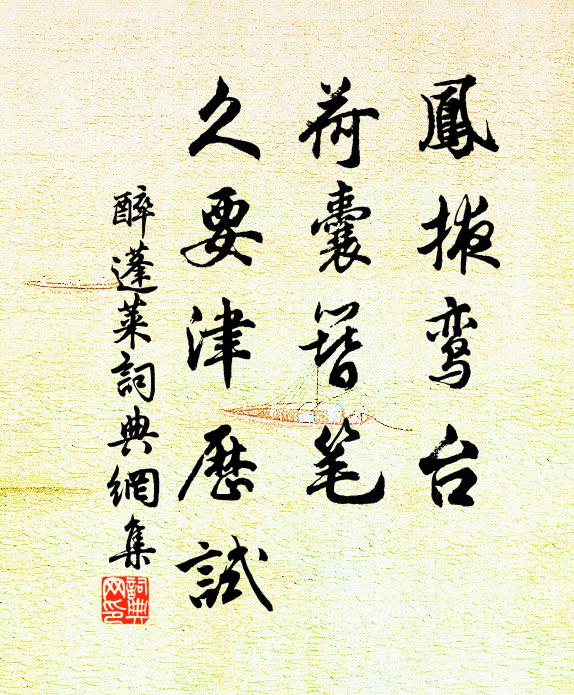 鳳掖鸾台
荷囊簪笔
久要津歷試
醉蓬萊詞典網集
詞典网印